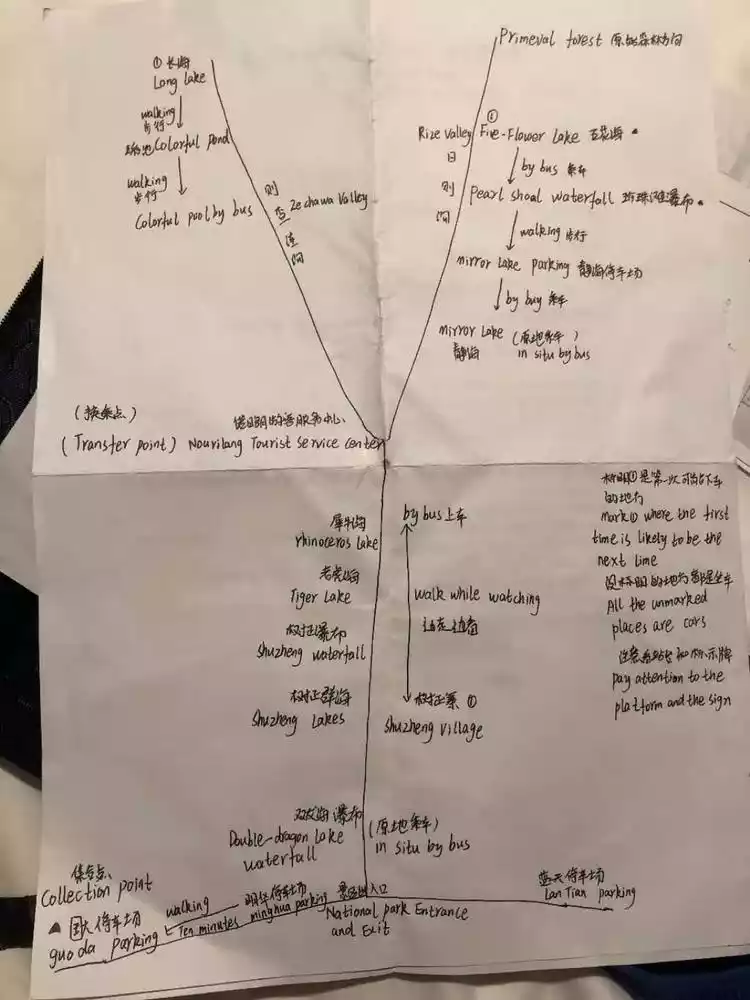 Primeval forest 原始森林方向
① 长海
Long lake
walking
步行
五彩池 Colorful pond
walking
步行
Colorful pool by bus
则
查 Zechawa Valley
洼
沟
①
Rize Valley Five-Flower Lake 五花海
日
则
沟
by bus 乘车
Pearl shoal waterfall 珍珠滩瀑布
walking 步行
mirror lake parking 静海停车场
by buy 乘车
mirror Lake (原地乘车)
静海 in situ by bus
(换乘点) 诺日朗游客服务中心
(Transfer point) Nourilang Tourist Service Center
犀牛海
rhinoceros Lake
老虎海
Tiger Lake
树正瀑布
shuzheng waterfall
树正群海
shuzheng Lakes
by bus 上车
walk while watching
边走边看
树正寨 ①
shuzheng village
标明①是第一次可能下车
的地方
mark① where the first
time is likely to be the
next time
没标明的地方都是坐车
All the unmarked
places are cars
注意看站台和标示牌
pay attention to the
platform and the sign
双龙海瀑布
Double-dragon Lake
waterfall
(原地乘车)
in situ by bus
集合点
Collection point
国大停车场
guo da parking
walking
Ten minutes
明华停车场
minghua parking
景区出入口
National park Entrance
and Exit
蓝天停车场
Lan Tian parking